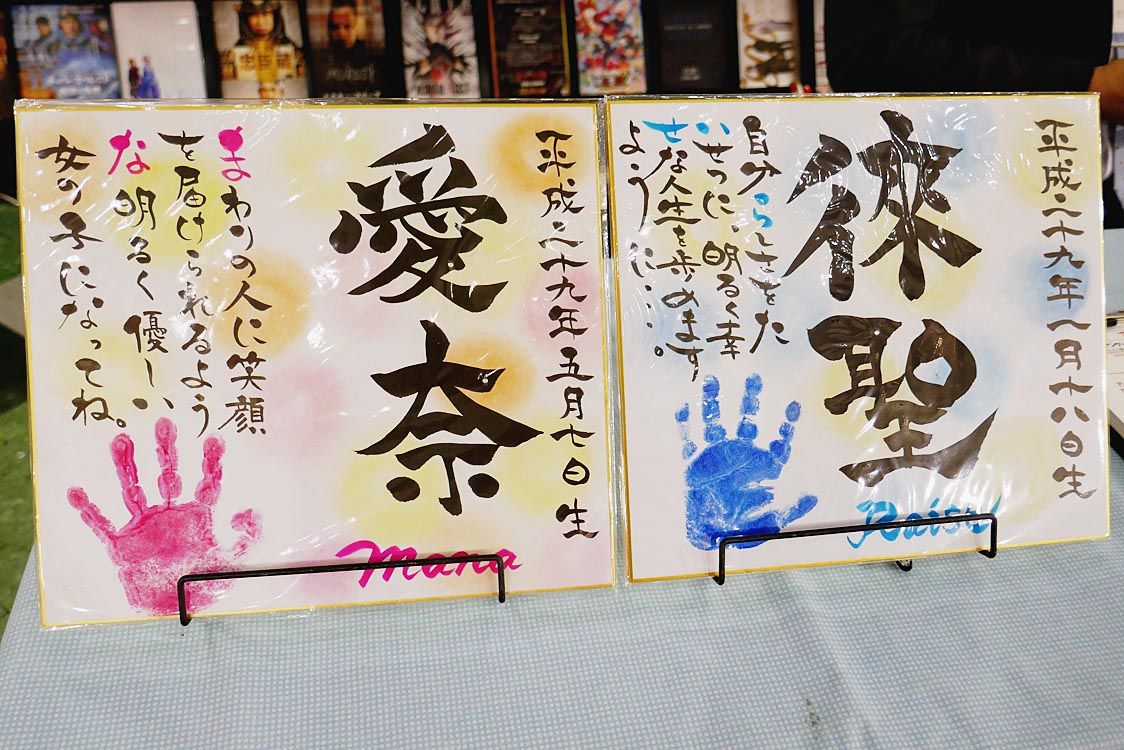 忠臣蔵
平成二十九年五月七日生
愛奈
まわりの人に笑顔
を届けられるよう
な明るく優しい
女の子になってね。
Mana
平成二十九年一月十八日生
徠聖
自分らしさをた
いせつに、明るく幸
せな人生を歩めます
ように…。